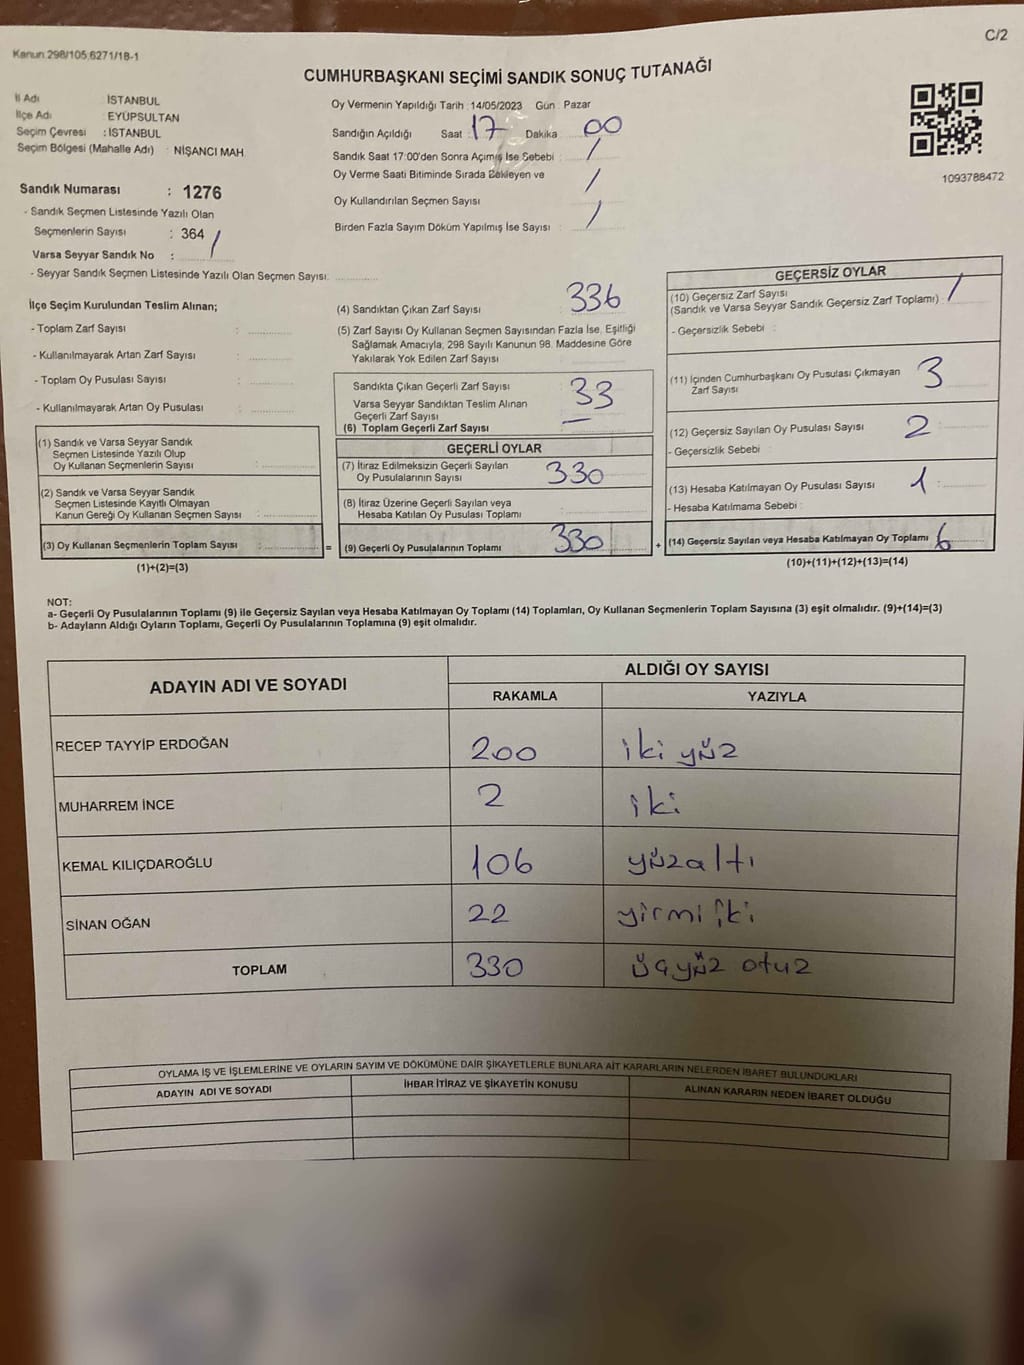 Kanun 298/105.6271/18-1
C/2
CUMHURBAŞKANI SEÇİMİ SANDIK SONUÇ TUTANAĞI
İl Adı : İSTANBUL
İlçe Adı : EYÜPSULTAN
Seçim Çevresi : İSTANBUL
Seçim Bölgesi (Mahalle Adı) : NİŞANCI MAH.
Oy Vermenin Yapıldığı Tarih : 14/05/2023 Gün : Pazar
Sandığın Açıldığı Saat : 17 Dakika : 00
Sandık Saat 17:00'den Sonra Açımış İse Sebebi : /
Oy Verme Saati Bitiminde Sırada Bekleyen ve
Oy Kullandırılan Seçmen Sayısı /
Birden Fazla Sayım Döküm Yapılmış İse Sayısı : /
1093788472
Sandık Numarası : 1276
- Sandık Seçmen Listesinde Yazılı Olan
Seçmenlerin Sayısı : 364
Varsa Seyyar Sandık No : /
- Seyyar Sandık Seçmen Listesinde Yazılı Olan Seçmen Sayısı:
İlçe Seçim Kurulundan Teslim Alınan;
- Toplam Zarf Sayısı :
- Kullanılmayarak Artan Zarf Sayısı :
- Toplam Oy Pusulası Sayısı :
- Kullanılmayarak Artan Oy Pusulası :
(1) Sandık ve Varsa Seyyar Sandık
Seçmen Listesinde Yazılı Olup
Oy Kullanan Seçmenlerin Sayısı :
(2) Sandık ve Varsa Seyyar Sandık
Seçmen Listesinde Kayıtlı Olmayan
Kanun Gereği Oy Kullanan Seçmen Sayısı :
(3) Oy Kullanan Seçmenlerin Toplam Sayısı :
(1)+(2)=(3)
=
(4) Sandıktan Çıkan Zarf Sayısı : 336
(5) Zarf Sayısı Oy Kullanan Seçmen Sayısından Fazla İse, Eşitliği
Sağlamak Amacıyla, 298 Sayılı Kanunun 98. Maddesine Göre
Yakılarak Yok Edilen Zarf Sayısı :
Sandıkta Çıkan Geçerli Zarf Sayısı : 33
Varsa Seyyar Sandıktan Teslim Alınan
Geçerli Zarf Sayısı : —
(6) Toplam Geçerli Zarf Sayısı
GEÇERLİ OYLAR
(7) İtiraz Edilmeksizin Geçerli Sayılan
Oy Pusulalarının Sayısı : 330
(8) İtiraz Üzerine Geçerli Sayılan veya
Hesaba Katılan Oy Pusulası Toplamı :
(9) Geçerli Oy Pusulalarının Toplamı : 330
+
GEÇERSİZ OYLAR
(10) Geçersiz Zarf Sayısı
(Sandık ve Varsa Seyyar Sandık Geçersiz Zarf Toplamı) : /
- Geçersizlik Sebebi :
(11) İçinden Cumhurbaşkanı Oy Pusulası Çıkmayan
Zarf Sayısı : 3
(12) Geçersiz Sayılan Oy Pusulası Sayısı : 2
- Geçersizlik Sebebi :
(13) Hesaba Katılmayan Oy Pusulası Sayısı : 1
- Hesaba Katılmama Sebebi :
(14) Geçersiz Sayılan veya Hesaba Katılmayan Oy Toplamı : 6
(10)+(11)+(12)+(13)=(14)
NOT:
a- Geçerli Oy Pusulalarının Toplamı (9) ile Geçersiz Sayılan veya Hesaba Katılmayan Oy Toplamı (14) Toplamları, Oy Kullanan Seçmenlerin Toplam Sayısına (3) eşit olmalıdır. (9)+(14)=(3)
b- Adayların Aldığı Oyların Toplamı, Geçerli Oy Pusulalarının Toplamına (9) eşit olmalıdır.
ADAYIN ADI VE SOYADI
ALDIĞI OY SAYISI
RAKAMLA YAZIYLA
RECEP TAYYİP ERDOĞAN 200 iki yüz
MUHARREM İNCE 2 iki
KEMAL KILIÇDAROĞLU 106 yüzaltı
SİNAN OĞAN 22 yirmi iki
TOPLAM 330 üçyüz otuz
OYLAMA İŞ VE İŞLEMLERİNE VE OYLARIN SAYIM VE DÖKÜMÜNE DAİR ŞİKAYETLERLE BUNLARA AİT KARARLARIN NELERDEN İBARET BULUNDUKLARI
ADAYIN ADI VE SOYADI İHBAR İTİRAZ VE ŞİKAYETİN KONUSU ALINAN KARARIN NEDEN İBARET OLDUĞU